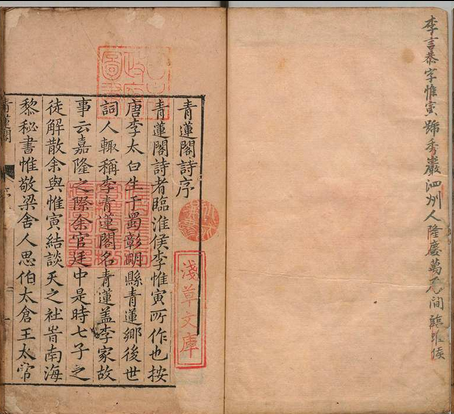 李言恭字惟寅號秀巖泗州人隆慶萬曆間臨淮侯
青蓮閣詩序
青蓮閣詩者臨淮侯李惟寅所作也按
唐李太白生于蜀彰明縣青蓮鄉後世
詞人輒稱李青蓮閣名青蓮盖李家故
事云嘉隆之際余官廷中是時七子之
徒解散余與惟寅結談天之社旹南海
黎秘書惟敬梁舍人思伯太倉王太常
淺草文庫